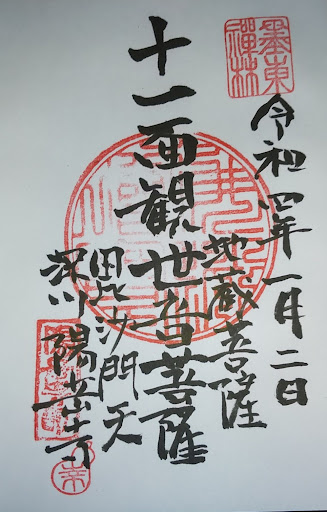 墨東
禪林
令和四年一月二日
地蔵菩薩
十一面観世音菩薩
毘沙門天
深川陽岳寺